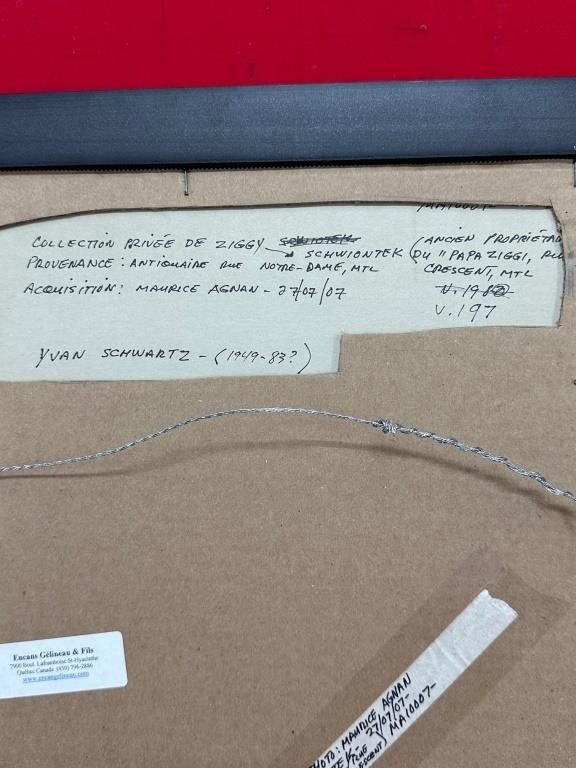 MA10007-
COLLECTION PRIVÉE DE ZIGGY SCHWIONTEK (ANCIEN PROPRIÉTAI
SCHWIONTEK DU "PAPA ZIGGI, RU
PROVENANCE: ANTIQUAIRE RUE NOTRE-DAME, MTL CRESCENT, MTL
ACQUISITION: MAURICE AGNAN - 27/07/07 V.1982
V.197
YVAN SCHWARTZ - (1949-83?)
Encans Gélineau & Fils
7900 Boul. Laframboise St-Hyacinthe
Québec Canada (450) 796-2886
www.encangelineau.com
PHOTO: MAURICE AGNAN
27/07/07-
MA10007-